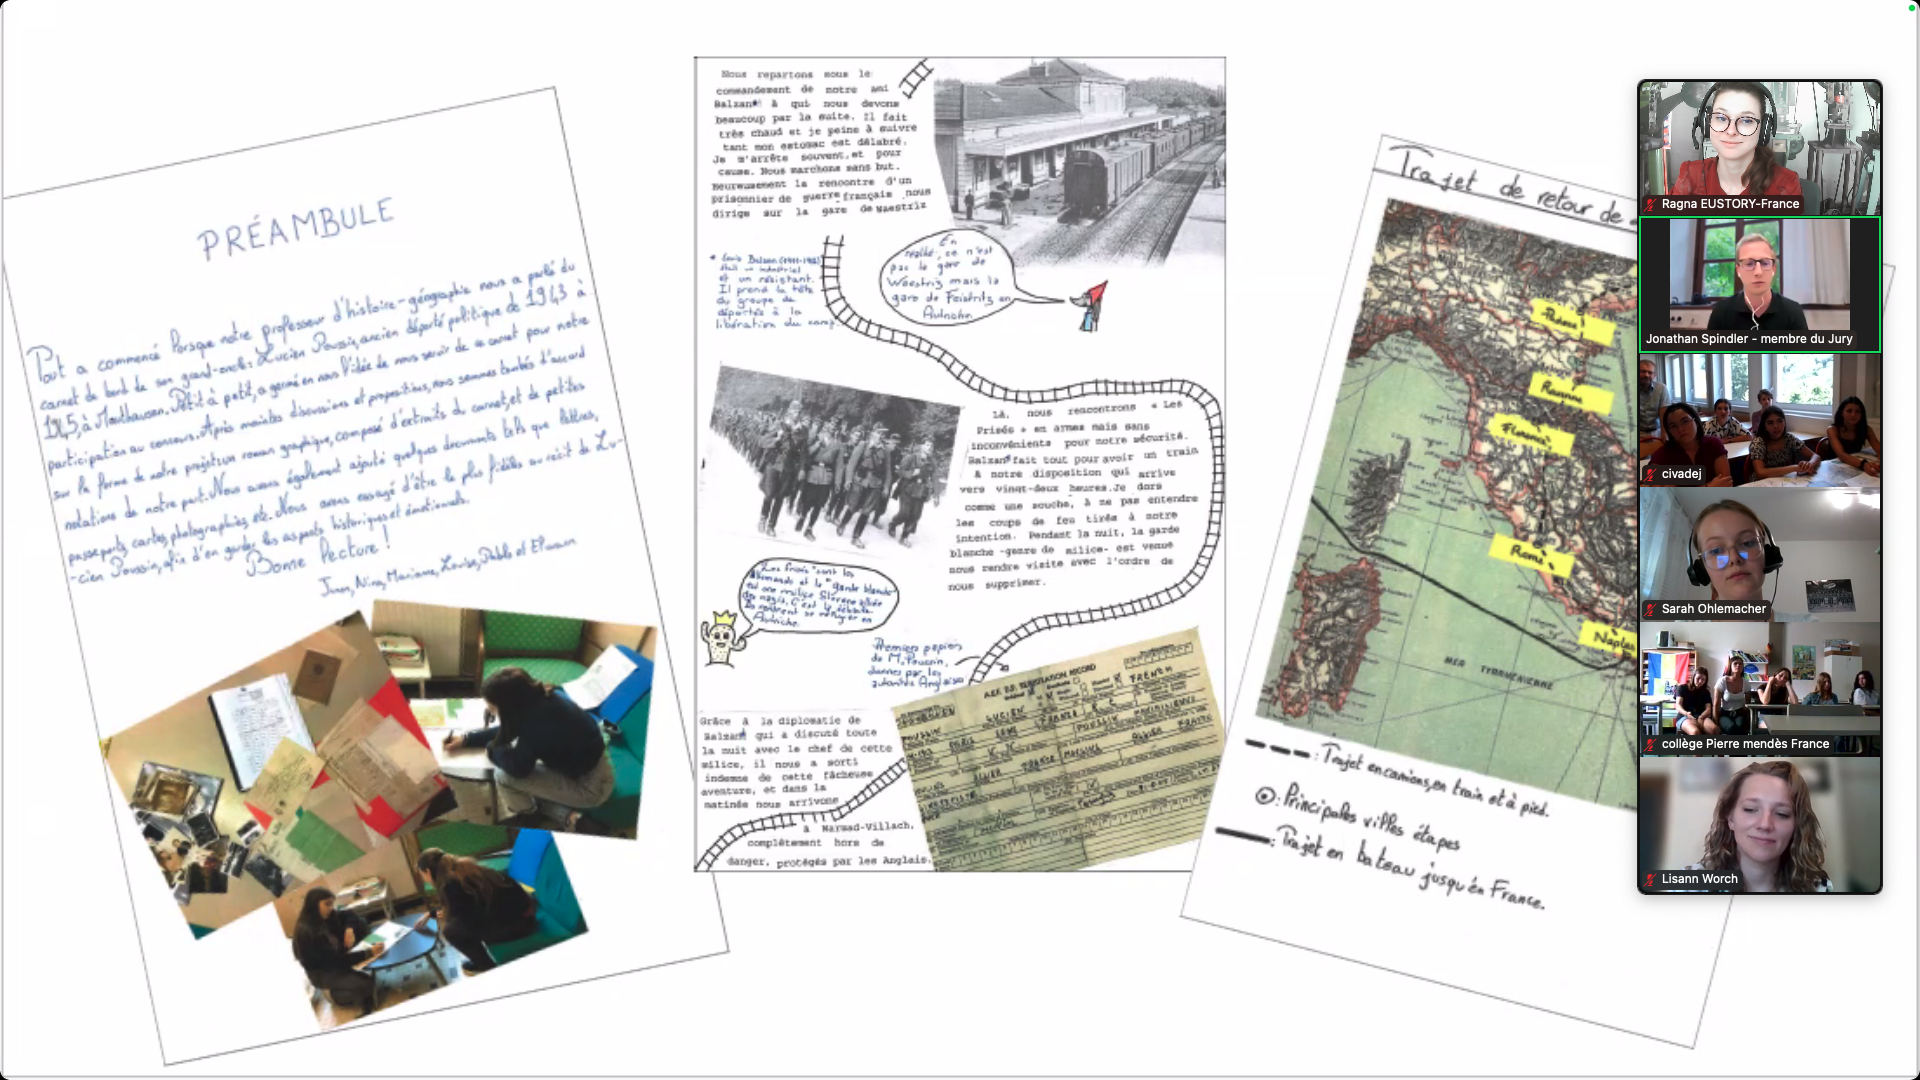 PRÉAMBULE
Tout a commencé lorsque notre professeur d'histoire-géographie nous a parlé du
carnet de bord de son grand-oncle: Lucien Poussin, ancien déporté politique de 1943 à
1945, à Mauthausen. Petit à petit, a germé en nous l'idée de nous servir de ce carnet pour notre
participation au concours. Après maintes discussions et propositions, nous sommes tombés d'accord
sur la forme de notre projet: un roman graphique, composé d'extraits du carnet, et de petites
notations de notre part. Nous avons également ajouté quelques documents tels que lettres,
passeports, cartes, photographies, etc. Nous avons essayé d'être le plus fidèles au récit de Lu-
-cien Poussin, afin d'en garder les aspects historiques et émotionnels.
Bonne lecture !
Nina, Marianne, Louise, Pablo et
Nous repartons sous le
commandement de notre ami
Balzan* à qui nous devons
beaucoup par la suite. Il fait
très chaud et je peine à suivre
tant mon estomac est délabré.
Je m'arrête souvent, et pour
cause. Nous marchons sans but.
Heureusement la rencontre d'un
prisonnier de guerre français nous
dirige sur la gare de Waestriz
* Louis Balsan
était un industriel
et un résistant.
Il prend la tête
du groupe de
déportés à la
libération du camp.
En
réalité, ce n'est
pas la gare de
Waestriz mais la
gare de Feistritz en
Autriche.
Là, nous rencontrons « Les
Frisés » en armes mais sans
inconvénients pour notre sécurité.
Balzan* fait tout pour avoir un train
à notre disposition qui arrive
vers vingt-deux heures. Je dors
comme une souche, à ne pas entendre
les coups de feu tirés à notre
intention. Pendant la nuit, la garde
blanche -genre de milice- est venue
nous rendre visite avec l'ordre de
nous supprimer.
"Les frisés" sont les
allemands et la "garde blanche"
est une milice Slovène alliée
des nazis. C'est la débâcle
ils rentrent se réfugier en
Autriche.
Premiers papiers
de M. Poussin,
donnés par les
autorités Anglaises
A.E.F. D.P. REGISTRATION RECORD
LUCIEN
Grâce à la diplomatie de
Balzan* qui a discuté toute
la nuit avec le chef de cette
milice, il nous a sorti
indemne de cette fâcheuse
aventure, et dans la
matinée nous arrivons
à Marmad-Villach,
complètement hors de
danger, protégés par les Anglais.
Trajet de retour de
Padoue
Ravenne
Florence
Rome
Naples
MER TYRRHÉNIENNE
: Trajet en camions, en train et à pied.
: Principales villes étapes
: Trajet en bateau jusqu'en France.
Ragna EUSTORY-France
Jonathan Spindler - membre du Jury
civadej
Sarah Ohlemacher
collège Pierre mendès France
Lisann Worch